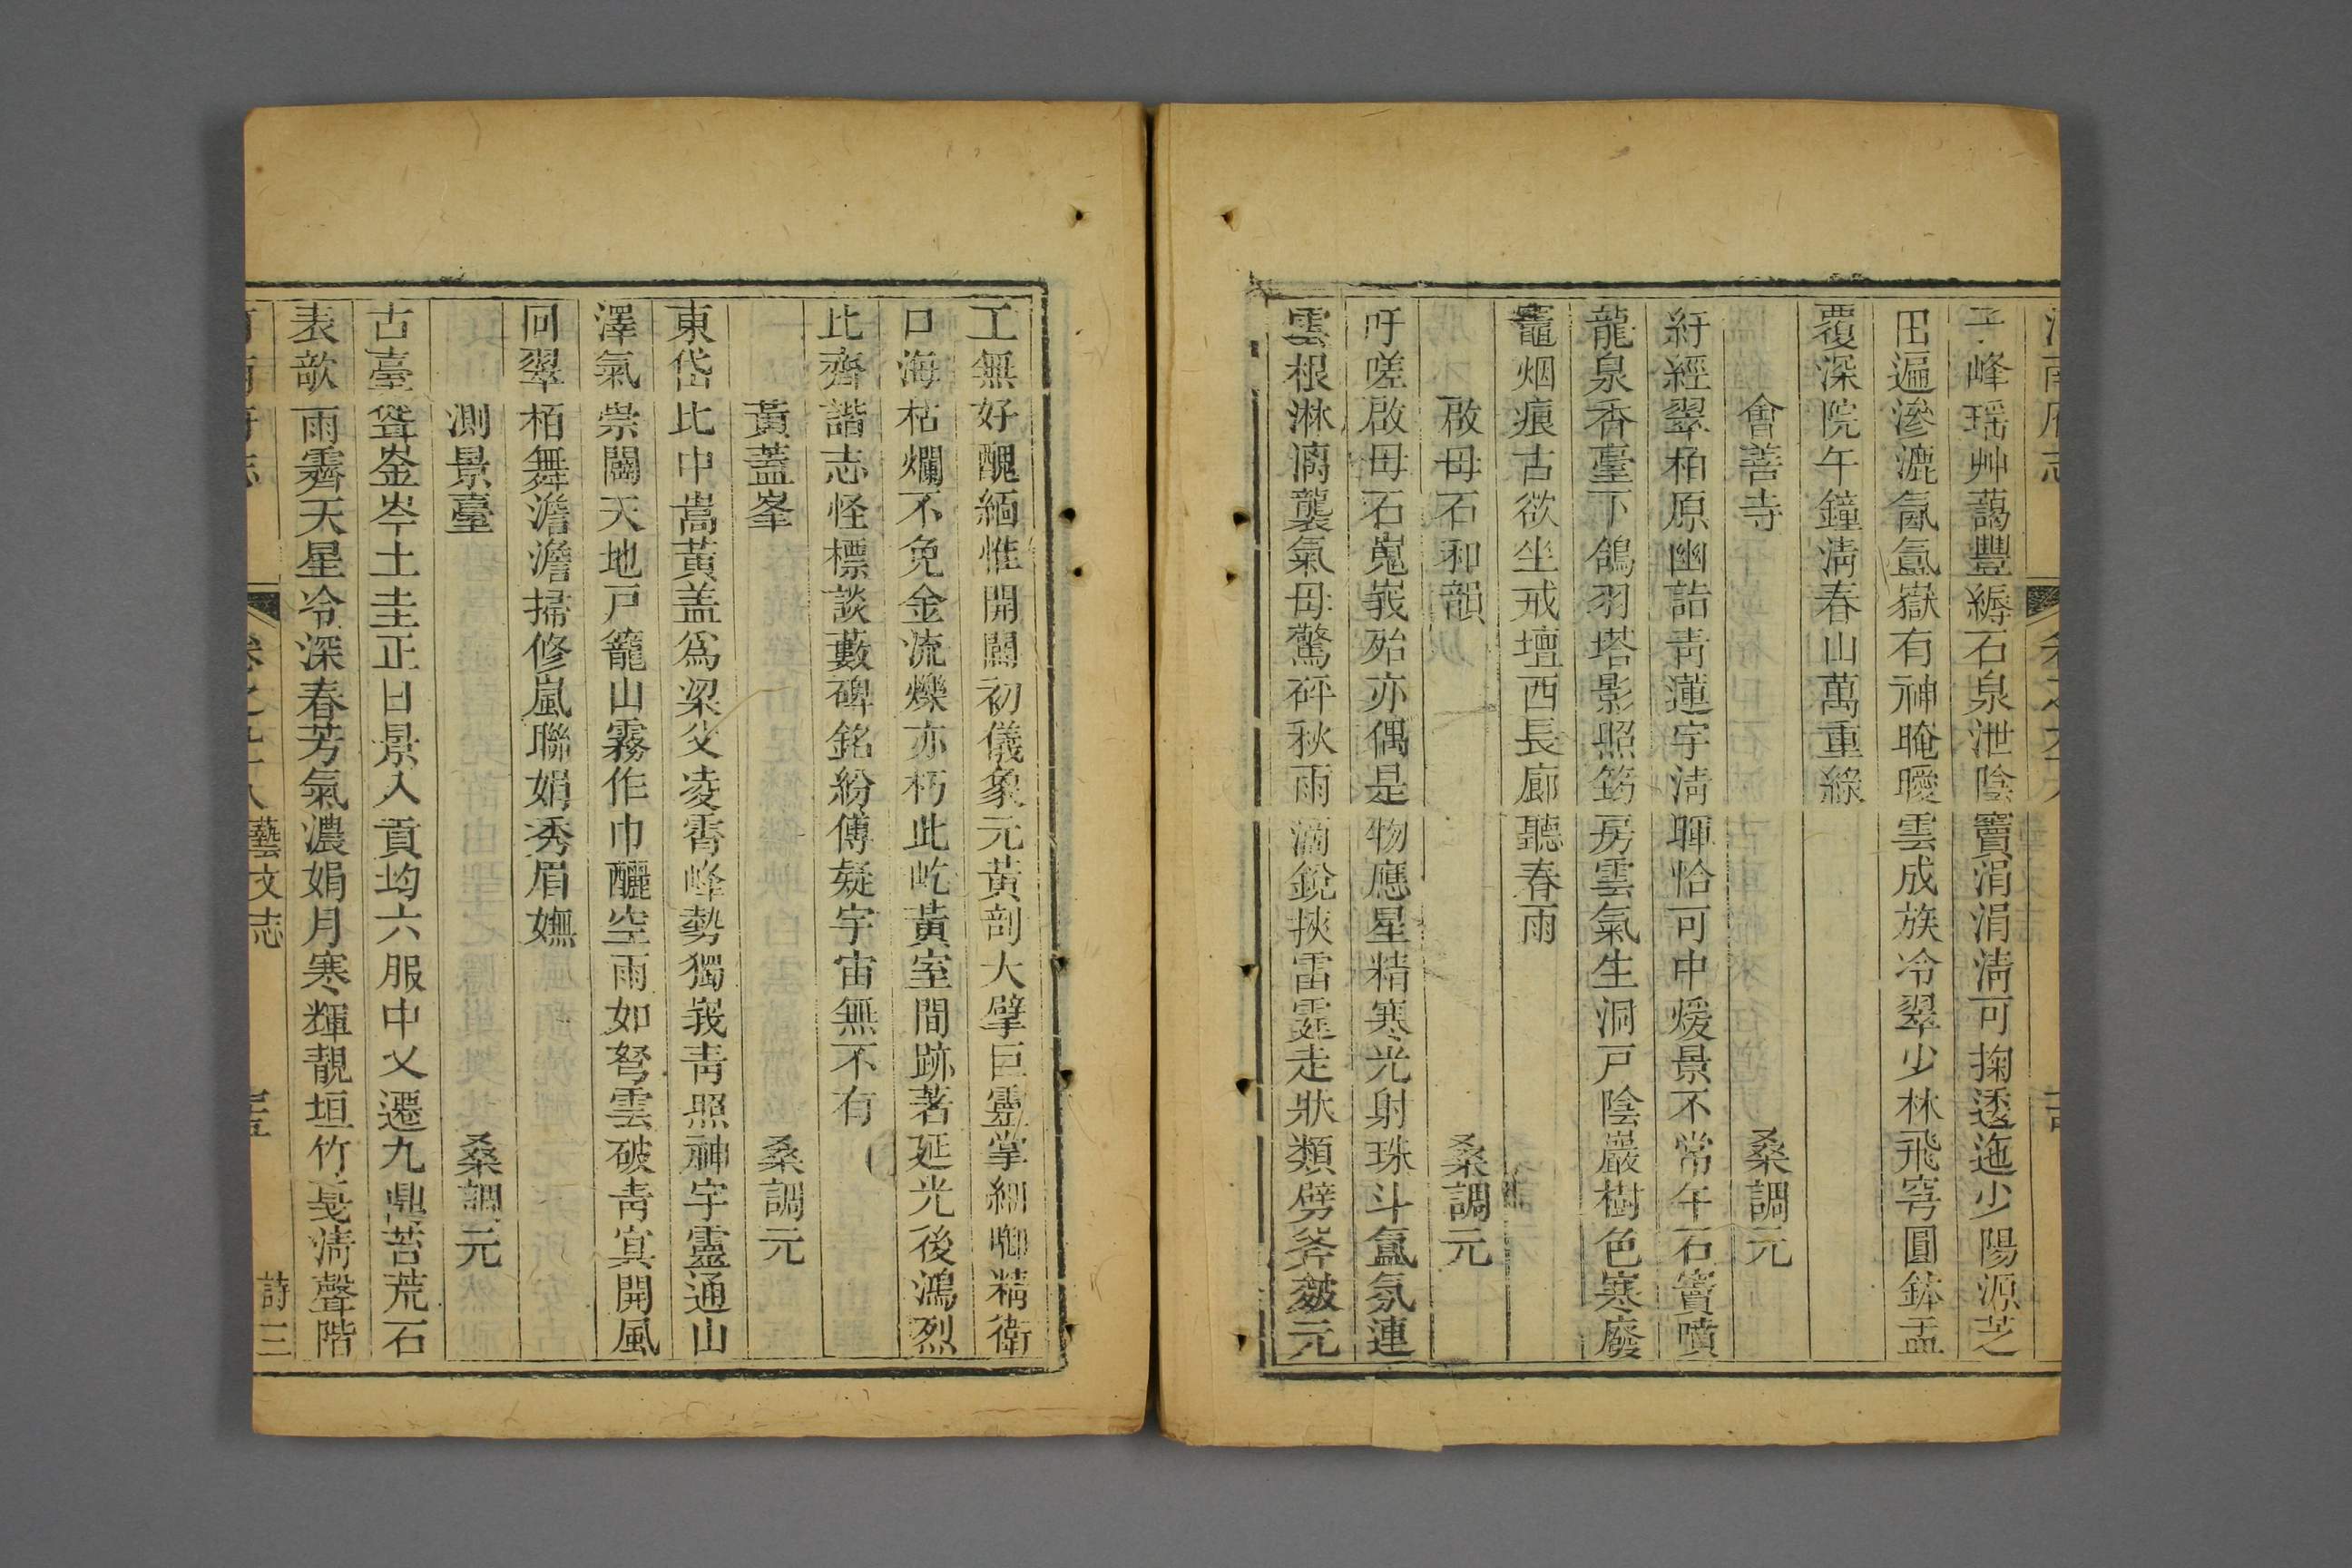 河南府志
平峰瑶艸藹豐縟石泉泄陰竇涓涓淸可掬逶迤少陽源芝
田遍滲漉氤氲嶽有神晻曖雲成族冷翠少林飛窅圓鉢盂
覆深院午鐘淸春山萬重綠
會善寺 桑調元
紆經翠栢原幽詰靑蓮宇淸暉恰可中煖景不常午石竇噴
龍泉香臺下鴿羽塔影照筇房雲氣生洞戸陰巖樹色寒廢
竈烟痕古欲坐戒壇西長廊聽春雨
啟母石和韻 桑調元
吁嗟啟母石嵬峩殆亦偶是物應星精寒光射珠斗氳氛連
雲根淋漓襲氣母驚砰秋雨滴銳挾雷霆走狀類劈斧皴元
工無好醜緬惟開闢初儀象元黃剖大擘巨靈掌細啣精衛
口海枯爛不免金流爍亦朽此屹黃室間跡著延光後鴻烈
比齊諧志怪標談藪碑銘紛傅疑宇宙無不有
黃蓋峯 桑調元
東岱比中嵩黃盖爲梁父凌霄峰勢獨峩靑照神宇靈通山
澤氣崇闢天地戸籠山霧作巾釃空雨如帑雲破靑㝠開風
回翠栢舞澹澹掃修嵐聯娟秀眉嫵
測景臺 桑調元
古臺聳崟岑土圭正日景入貢均六服中乂遷九鼎苔荒石
表欹雨霽天星冷深春芳氣濃娟月寒輝靚垣竹戞淸聲階
藝文志 詩三